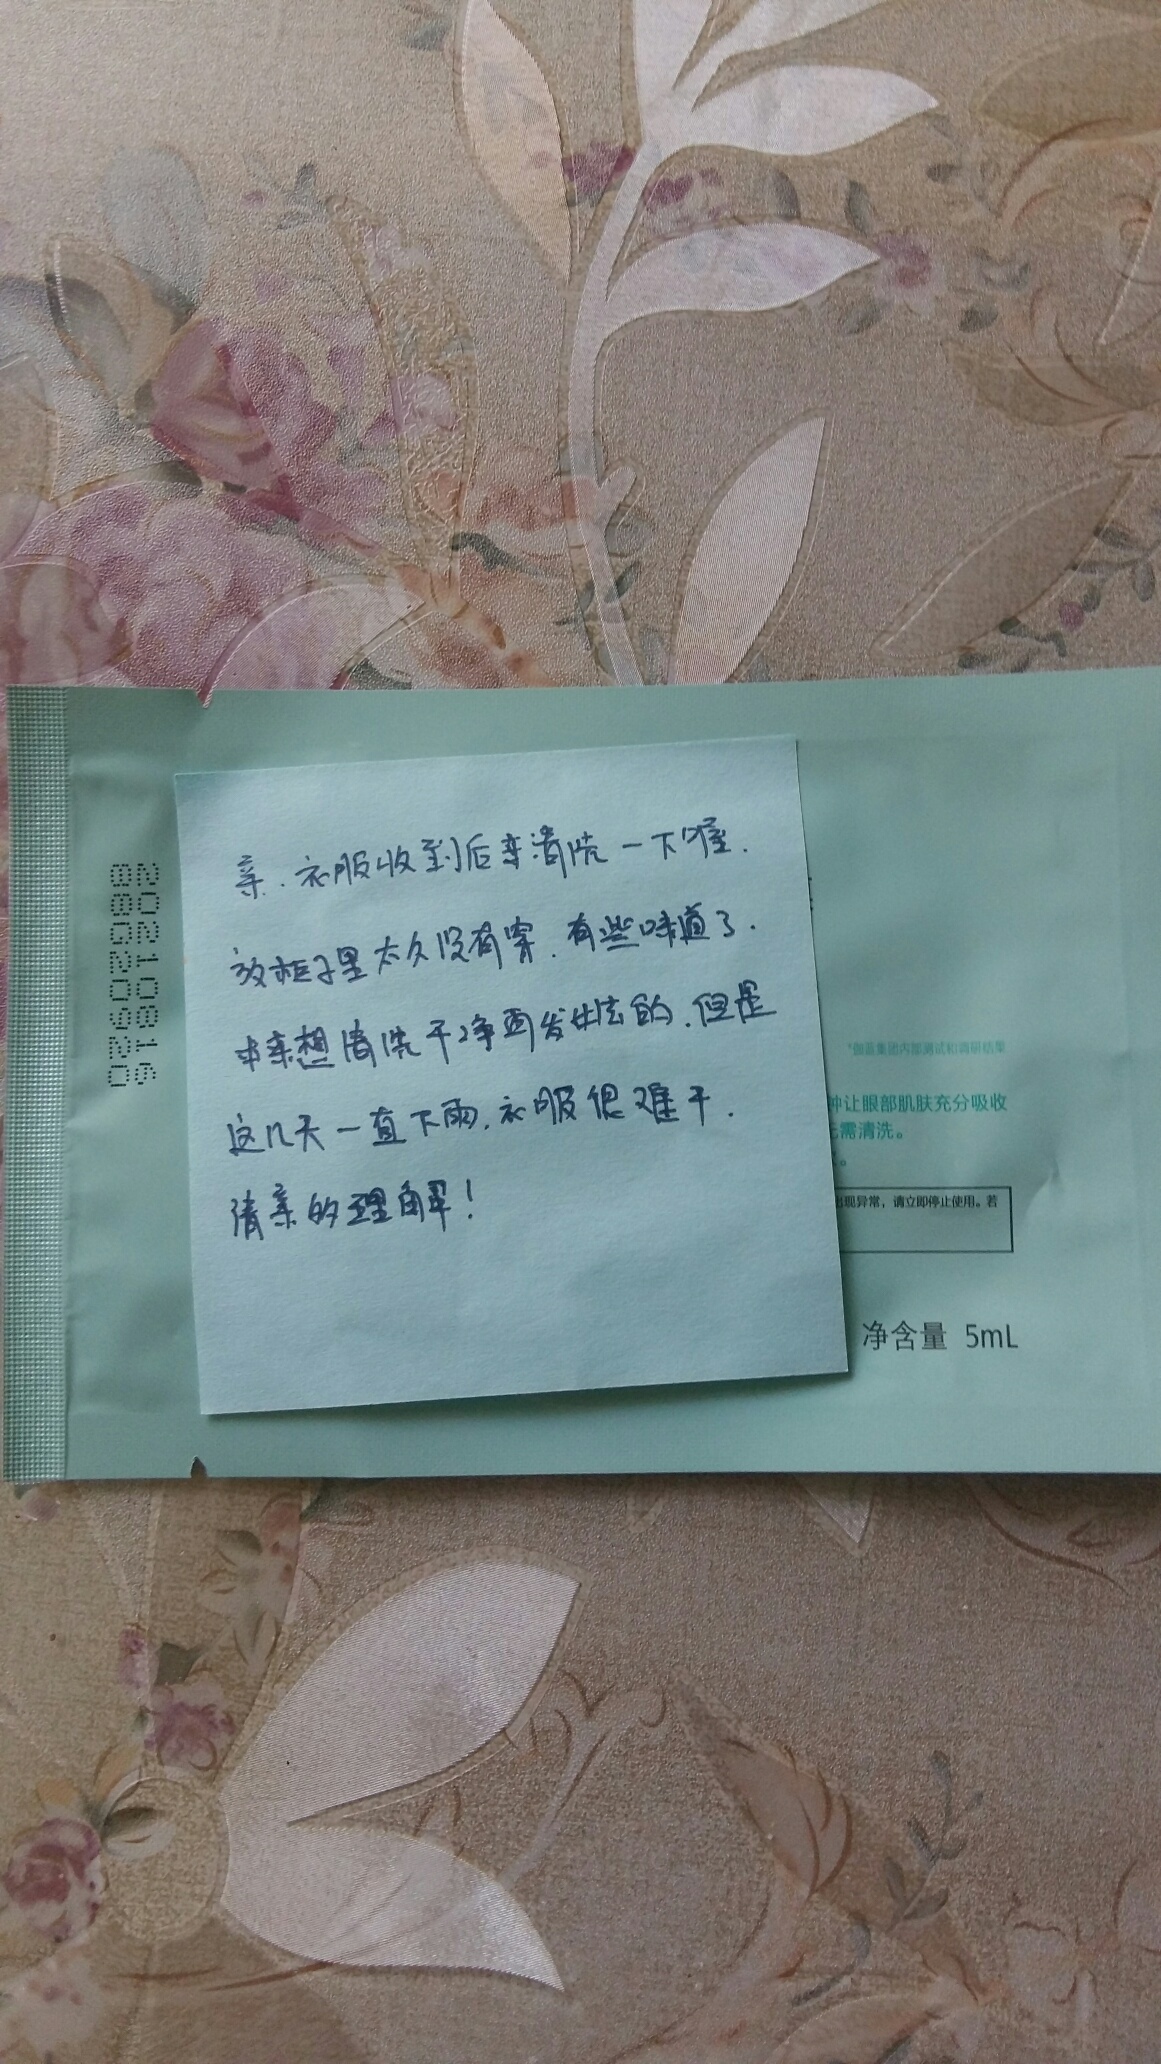 亲.衣服收到后亲清洗一下喔.
放柜子里太久没有穿.有些味道了.
本来想清洗干净再发出去的.但是
这几天一直下雨.衣服很难干.
请亲的理解!
20210816
88G20920
*伽蓝集团内部测试和调研结果
钟让眼部肌肤充分吸收
无需清洗。
出现异常，请立即停止使用。若
净含量 5mL